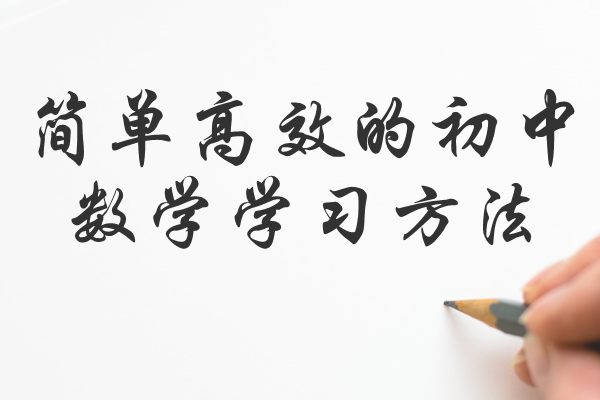 简单高效的初中
数学学习方法